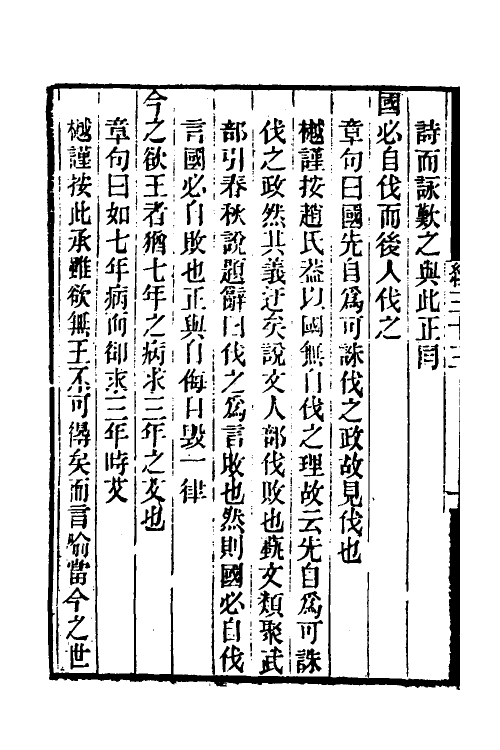 詩而詠歎之與此正同
國必自伐而後人伐之
章句曰國先自爲可誅伐之政故見伐也
樾謹按趙氏葢以國無自伐之理故云先自爲可誅
伐之政然其義迂矣說文人部伐敗也蓺文類聚武
部引春秋說題辭曰伐之爲言敗也然則國必自伐
言國必自敗也正與自侮自毀一律
今之欲王者猶七年之病求三年之艾也
章句曰如七年病而卻求三年時艾
樾謹按此承雖欲無王不可得矣而言喻當今之世
經三十三